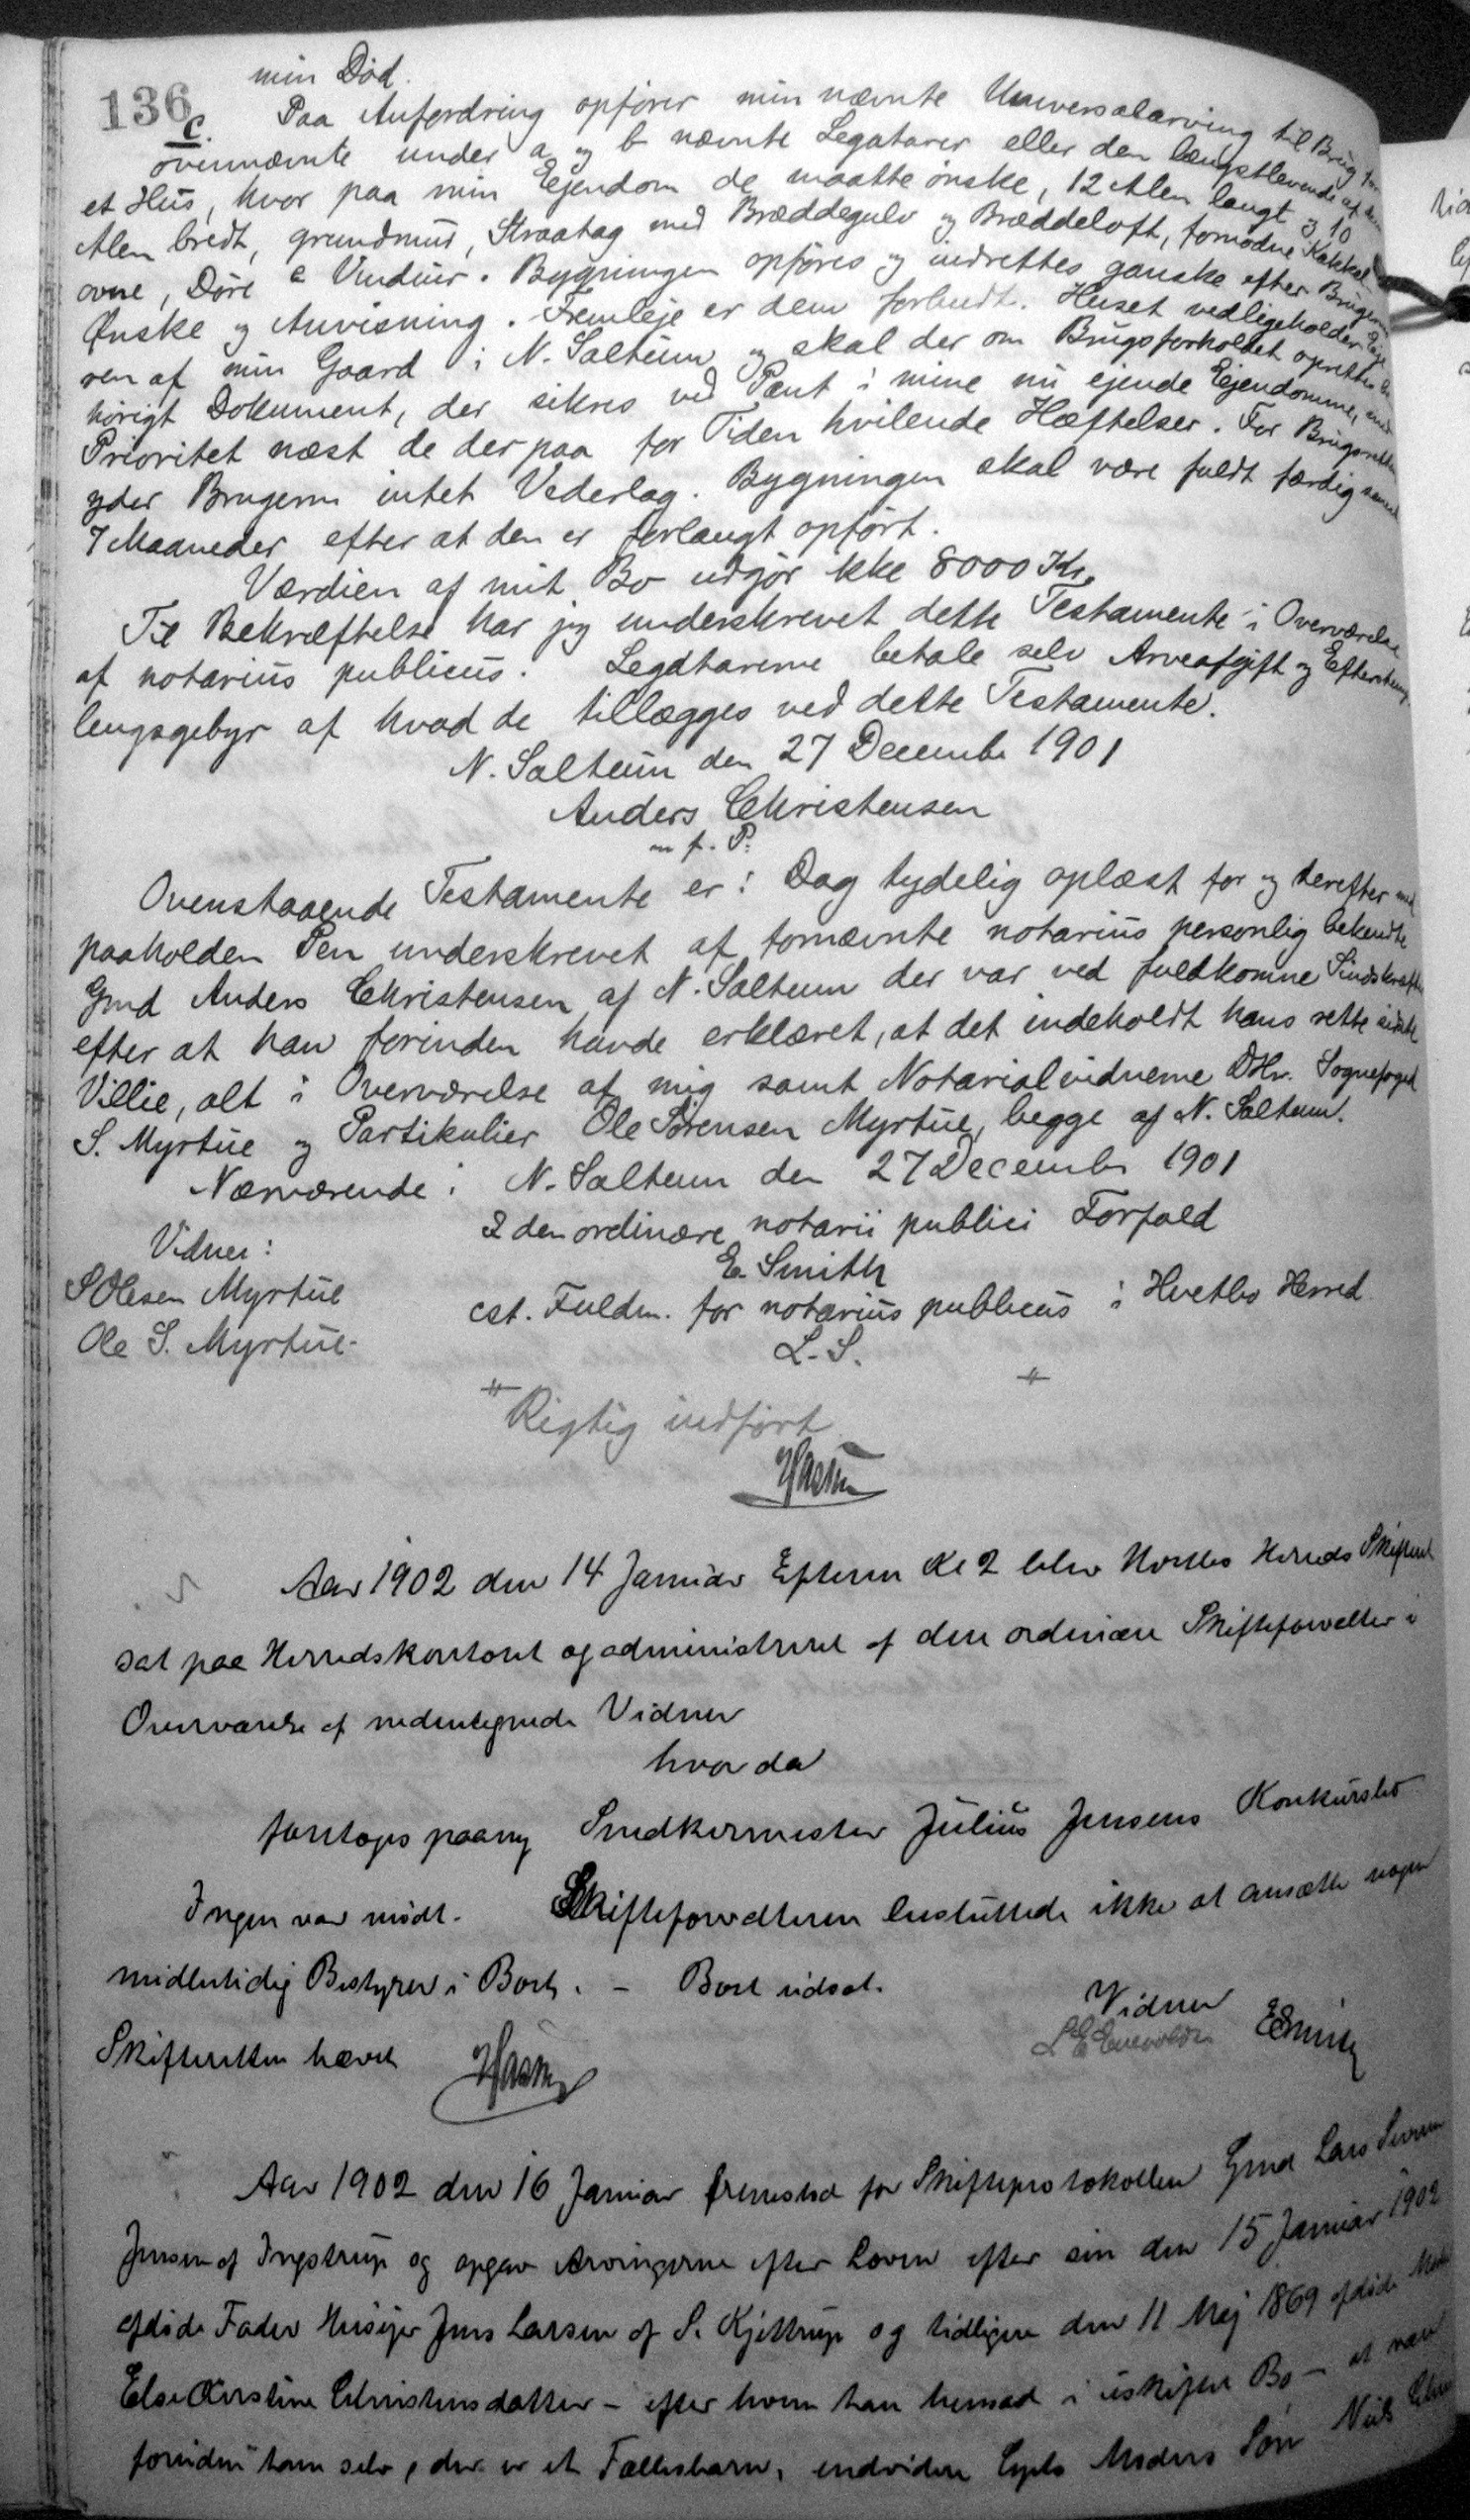 136
min Død.
c. Paa Anfordring opfører min nævnte Universalarving til Brug for
ovennævnte under a og b nævnte Legatarer eller den længstlevende af dem
et Hus, hvor paa min Ejendom de maatte ønske, 12 Alen langt og 10
Alen bredt, grundmur, Straatag med Bræddegulv og Bræddeloft, fornødne Kakkel
ovne, Døre & Vinduer. Bygningen opføres og indrettes ganske efter Brugernes
Ønske og Anvisning. Fremleje er dem forbudt. Huset vedligeholder Eje
ren af min Gaard i N. Saltum og skal der om Brugsforholdet oprettes be
hørigt Dokument, der sikres ved Pant i mine nu ejende Ejendomme, med
Prioritet næst de derpaa for Tiden hvilende Hæftelser. For Brugsretten
yder Brugerne intet Vederlag. Bygningen skal være fuldt færdig senest
7 Maaneder efter at den er forlangt opført.
Værdien af mit Bo udgjør ikke 8000 Kr.
Til Bekræftelse har jeg underskrevet dette Testamente i Overværelse
af notarius publicus. Legatarerne betale selv Arveafgift og Efterstem
lengsgebyr af hvad de tillægges ved dette Testamente.
N. Saltum den 27 Decembr 1901
Anders Christensen
m f. P.
Ovenstaaende Testamente er i Dag tydelig oplæst for og derefter med
paaholden Pen underskrevet af fornævnte notarius personlig bekendte
Gmd Anders Christensen af N. Saltum der var ved fuldkomne Sindskræfter
efter at han forinden havde erklæret, at det indeholdt hans rette sidste
Villie, alt i Overværelse af mig samt Notarialvidnerne DHr. Sognefoged
S. Myrtue og Partikulier Ole Sørensen Myrtue, begge af N. Saltum.
Nærværende i N. Saltum den 27 Decembr 1901
I den ordinære notarii publici Forfald
Vidner:
E. Smith
S Olesen Myrtue
cst. Fuldm. for notarius publicus i Hvetbo Herred
Ole S. Myrtue
L. S.
Rigtig indført
Aar 1902 den 14 Januar Efterm Kl 2 blev Hvetbo Herreds Skifteret
sat paa Herredskontoret og administreret af den ordinære Skifteforvalter i
Overværelse af undertegnede Vidner
hvor da
foretoges paany Snedkermester Julius Jensens Konkursbo
Ingen var mødt. Skifteforvalteren besluttede ikke at ansætte nogen
midlertidig Bestyrer i Boet. - Boet udsat.
Vidner
Skifteretten hævet
L E Enevoldsen ESmith
Aar 1902 den 16 Januar fremstod for Skifteprotokollen Gmd Lars
Jensen af Ingstrup og opgav Arvingerne efter Loven efter sin den 15 Januar 1902
afdøde Fader Husejer Jens Larsen af S. Kjettrup og tidligere den 11 Maj 1869 afdøde
Else Kirstine Christensdatter - efter hvem han hensad i uskiftet Bo - at være
foruden ham selv, der er et Fællesbarn, endvidere Moders Søn Niels